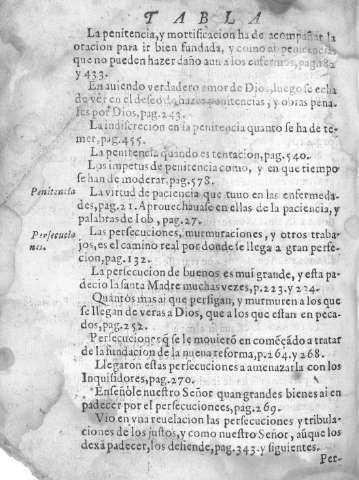 TABLA
La penitencia, y mortificacion ha de acompañar la
oracion para ir bien fundada, y como ai penitencias
que no pueden hazer daño aun a los enfermos, pag. 182
y 433.
En auiendo verdadero amor de Dios, luego se echa
de ver en el deseo de hazer penitencias, y obras pena-
les por Dios, pag. 243.
La indiscrecion en la penitencia quanto se ha de te-
mer, pag. 455.
La penitencia quando es tentacion, pag. 540.
Los impetus de penitencia como, y en que tiempo
se han de moderar, pag. 578.
Penitencia La virtud de paciencia que tuuo en las enfermeda-
des, pag. 21. Aprouechauase en ellas de la paciencia, y
palabras de Iob, pag. 27.
Persecucio Las persecuciones, murmuraciones, y otros traba-
nes. jos, es el camino real por donde se llega a gran perfe-
cion, pag. 132.
La persecucion de buenos es mui grande, y esta pa-
decio la santa Madre muchas vezes, p. 223. y 224.
Quantos mas ai que persigan, y murmuren a los que
se llegan de veras a Dios, que a los que estan en peca-
dos, pag. 252.
Persecuciones q̃ se le mouierõ en comẽçãdo a tratar
de la fundacion de la nueua reforma, p. 264. y 268.
Llegaron estas persecuciones a amenazarla con los
Inquisidores, pag. 270.
Enseñole nuestro Señor quan grandes bienes ai en
padecer por el persecuciones, pag. 269.
Vio en vna reuelacion las persecuciones y tribula-
ciones de los justos, y como nuestro Señor, aũque los
dexa padecer, los defiende, pag. 343. y siguientes.
Per-